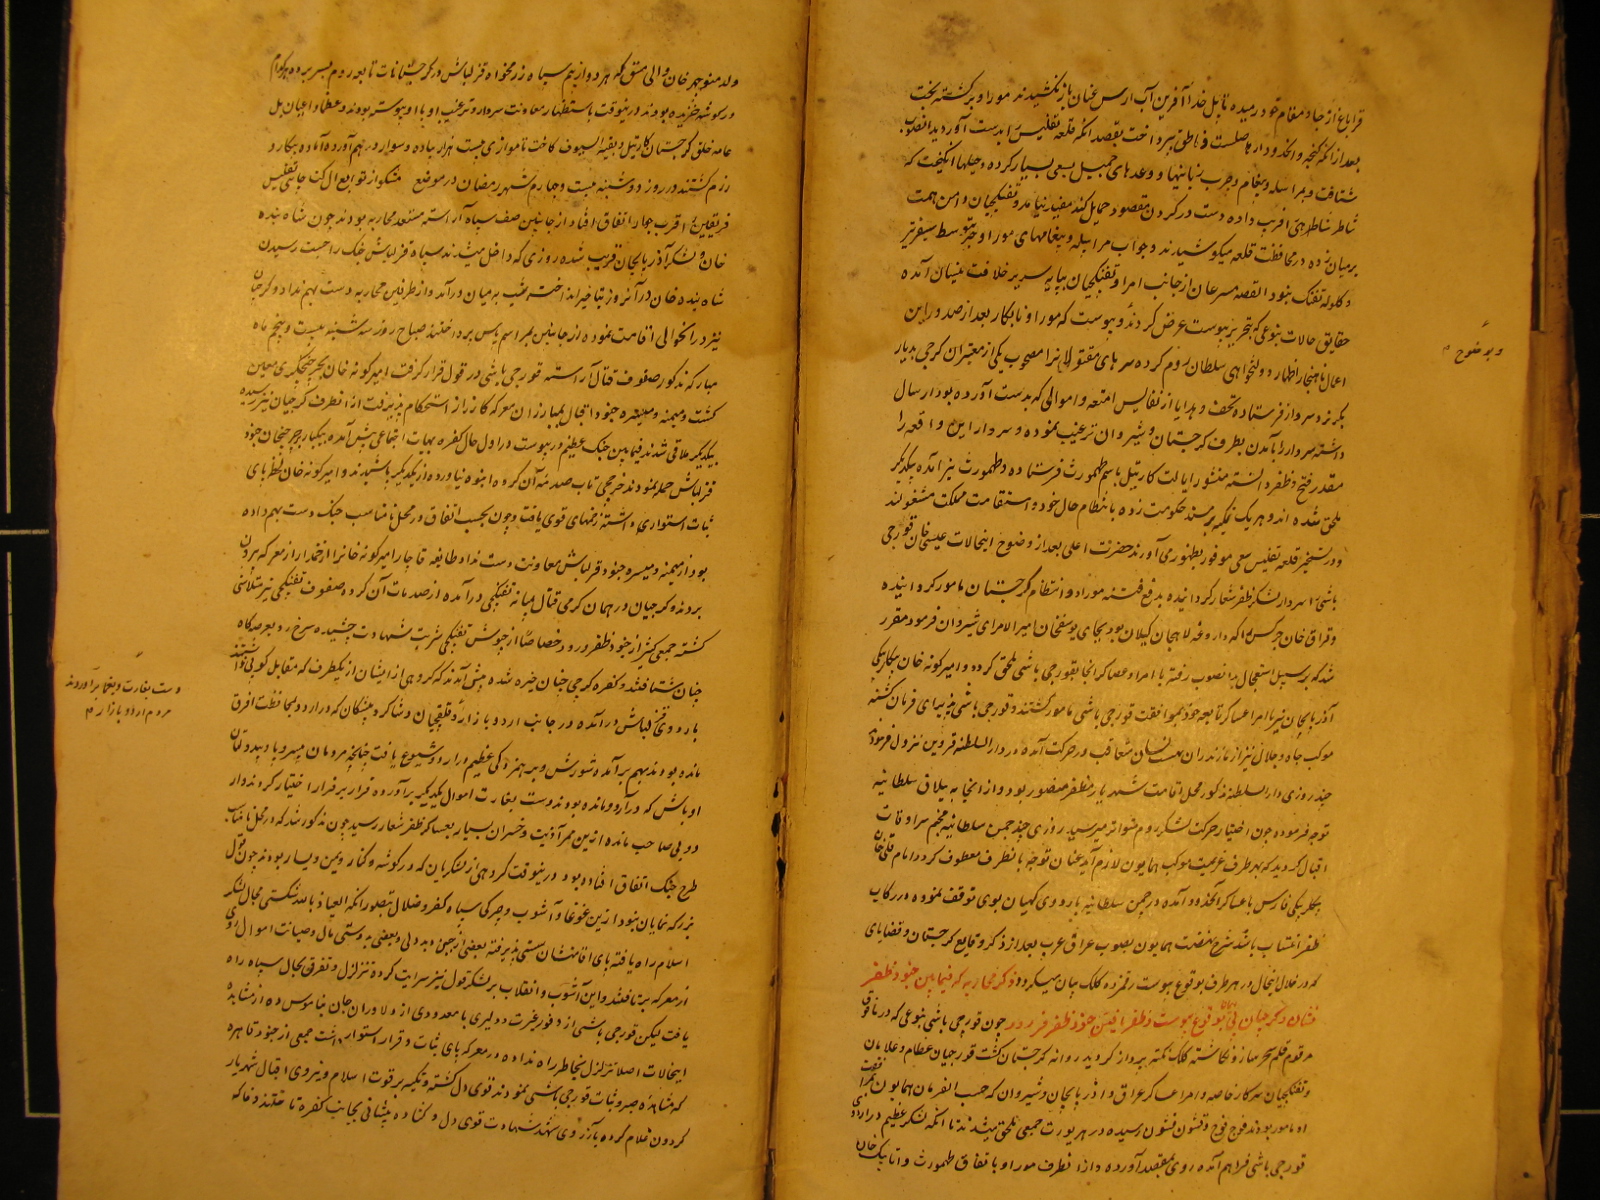 قراباغ از جا و مقام خود رمیده تا پل خداآفرین آب ارس عنان باز نکشیدند موراو برگشته بخت
بعد از آنکه گنجه و انحدود را بقصد آنکه قلعه تفلیس را بدست آورد بدانصوب
شتافت و بمراسله و پیغام و چرب زبانیها و وعدهای جمیل سعی بسیار کرده و حیلها انگیخت که
شاید فریب داده دست در گردن مقصود حمایل کند مفید نیامد و تفنگچیان دامن همت
بر میان زده در محافظت قلعه میکوشیدند و جواب مراسله و پیغامهای موراو جز بتوسط سفیر تیر
و گلوله تفنگ نبود القصه مسرعان از جانب امرا و تفنگچیان پیاپی بسریر خلافت نشان آمده
حقایق حالات بنوعی که بتحریر پیوست عرض کردند و پیوست که موراو نابکار بعد از صدور این
اعمال ناهنجار اظهار دولتخواهی سلطان روم کرده سرهای مقتولانرا مصحوب یکی از معتبران گرجی بدیار
بکر نزد سردار فرستاده تحف و هدایا از نفایس امتعه و اموالی که بدست آورده بود ارسال
داشته سردار را بآمدن بطرف گرجستان و شیروان ترغیب نموده و سردار این واقعه را
مقدر فتح و ظفر دانسته منشور ایالت کارتیل باسم طهمورث فرستاده و طهمورث نیز آمده بیکدیگر
ملحق شده اند و هر یک تکیه بر مسند حکومت زده بانتظام حال خود و استقامت مملکت مشغولند
و در تسخیر قلعه تفلیس سعی موفور بظهور می آورند حضرت اعلی بعد از وضوح اینحالات عیسی خان قورچی
باشی را سردار لشکر ظفر شعار گردانیده بدفع فتنه موراو و انتظام گرجستان مامور گردانیده
و قزاق خان چرکس را که داروغه لاهیجان گیلان بود بجای یوسفخان امیرالامرای شیروان فرمود مقرر
شد که بر سبیل استعجال بدانصوب رفته با امرا و عساکر آنجا بقورچی باشی ملحق گردد و امیرگونه خان بیگلربیگی
آذربایجان نیز با امرا و عساکر تابعه خود بموافقت قورچی باشی مامور گشتند و قورچی باشی پذیرای فرمان گشته
موکب جاه و جلال نیز از مازندران بهشت نشان متعاقب در حرکت آمده در دارالسلطنه قزوین نزول فرمودند
چند روزی دارالسلطنه مذکور محل اقامت شهریار مظفر منصور بود و از آنجا به ییلاق سلطانیه
توجه فرموده چون اخبار حرکت لشکر روم متواتر میرسید روزی چند چمن سلطانیه مخیم سرادقات
اقبال گردید که بهر طرف عزیمت موکب همایون لازم آید عنان توجه بانطرف معطوف گردد و امام قلی خان
بیگلربیگی فارس با عساکر آنحدود آمده در چمن سلطانیه باردوی کیهان پوی توقف نموده در رکاب
ظفر انتساب باشد شرح نهضت همایون بصوب عراق عرب بعد از ذکر وقایع گرجستان و قضایای
که در خلال اینحال در هر طرف بوقوع پیوست رقمزده کلک بیان میگردد ذکر محاربه که فیما بین جنود ظفر
نشان و گرجیان بی ایمان بوقوع پیوست و ظفر یافتن جنود ظفر ورود چون قورچی باشی بنوعی که در ما فوق
مرقوم قلم سحرساز و نگاشته کلک نکته پرداز گردید روانه گرجستان گشت قورچیان عظام و غلامان
و تفنگچیان سرکار خاصه و امرا و عساکر عراق و آذربایجان و شیروان که حسب الفرمان همایون
او مامور بودند فوج فوج و قشون قشون رسیده در هر یورت جمعی ملحق میشدند تا آنکه لشکر عظیم در اردوی
قورچی باشی فراهم آمده روی بمقصد آورده و از آنطرف موراو باتفاق طهمورث و اتابیک خان
و بر وضوح
ولد منوچهر خان والی مسق که هر دو از بیم سپاه رزمخواه قزلباش در گرجستانات تابعه روم بسر برده هر کدام
در گوشه خزیده بودند درینوقت باستظهار معاونت سردار و ترغیب او باو پیوسته بودند و عظما و اعیان بل
عامه خلق گرجستان کارتیل و بقیه السیوف کاخت تا موازی بیست هزار پیاده و سوار در هم آورده آماده پیکار و
رزم گشتند در روز دوشنبه بیست و چهارم شهر رمضان در موضع مشکو از توابع ال کت جای تفلیس
فریقین را قرب جوار اتفاق افتاد و از جانبین صف سپاه آراسته مستعد محاربه بودند چون شاه بنده
خان و لشکر آذربایجان قریب شده روزی که داخل میشدند سپاه قزلباش جنگ را جهت رسیدن
شاه بنده خان در آنروز بتاخیر انداخته شب به میان درآمد و از طرفین محاربه دست بهم نداد و گرجیان
نیز در انحوالی اقامت نموده از جانبین بمراسم پاس پرداختند صباح روز سه شنبه بیست و پنجم ماه
مبارک مذکور صفوف قتال آراسته قورچی باشی در قول قرار گرفت امیرگونه خان بچرخچیگری معین
گشت و میمنه و میسره جنود اقبال بمبارزان معرکه کارزار استحکام پذیرفت از آنطرف گرجیان نیز رسیده
بیکدیگر ملاقی شدند فیمابین جنگ عظیم در پیوست در اول حال کفره بهیات اجتماعی پیش آمده بیکبار بر چرخچیان جنود
قزلباش حمله نمودند چرخچی تاب صدمه آن گروه انبوه نیاورده از یکدیگر پاشیدند و امیرگونه خان لحظه پای
ثبات استواری داشته زخمهای قوی یافت و چون بحسب اتفاق در محل نامناسب جنگ دست بهم داده
بود از میمنه و میسره جنود قزلباش معاونت دست نداد طایفه قاجار امیرگونه خانرا زخمدار از معرکه بیرون
بردند و گرجیان در همان گرمی قتال بمیانه تفنگچی درآمده از صدمات آن گروه صفوف تفنگچی نیز متلاشی
گشته جمعی کثیر از جنود ظفر ورود خصوصا از جیوش تفنگچی شربت شهادت چشیده سرخ رو بعرصه گاه
جنان شتافتند و کفره گرجی چنان خیره شده پیش آمدند که گروهی از ایشان از یکطرف که مقابل کوبی نداشتند
باردوی قزلباش درآمده در جانب اردو بازار و قلقچیان و شاگرد پیشگان که در اردو بمحافظت افرق
مانده بودند بهم برآمده شورش و برهمزدگی عظیم در اردو شیوع یافت چنانچه مردمان بی سر و پا و بددلان
اوباش که در اردو مانده بودند دست بغارت اموال یکدیگر برآورده قرار بر فرار اختیار کردند و از
دو بی صاحب مانده ازین ممر آذیت و خسران بسیار بعساکر ظفر شعار رسید چون مذکور شد که در محل نامناسب
طرح جنگ اتفاق افتاده بود و درینوقت گروهی از لشکریان که در گوشه و کنار و یمن و یسار بودند چون قول
بزرگه نمایان نبود ازین غوغا و آشوب و چیرگی سپاه کفر و ضلال بتصور آنکه العیاذ بالله شکستی بحال لشکر
اسلام راه یافته پای اقامتشان سستی پذیرفته بعضی از جبن و بددلی و بعضی به دوستی مال و صیانت اموال روی
از معرکه برتافتند و این آشوب و انقلاب بر لشکر قول نیز سرایت کرده تزلزل و تفرق بحال سپاه راه
یافت لیکن قورچی باشی از وفور غیرت و دلیری با معدودی از دلاوران جان بناموس ده از مشاهده
اینحالات اصلا تزلزل بخاطر راه نداده در معرکه پای ثبات و قرار استوار داشت جمعی از جنود قاهره
که مشاهده صبر و ثبات قورچی باشی نمودند قوی دل گشته و تکیه بر قوت اسلام و نیروی اقبال شهریار
گردون غلام کرده بآرزوی شهد شهادت قوی دل و گشاده پیشانی بجانب کفره تاختند و غا که
دست بغارت و یغما برآوردند
مردم اردو بازار